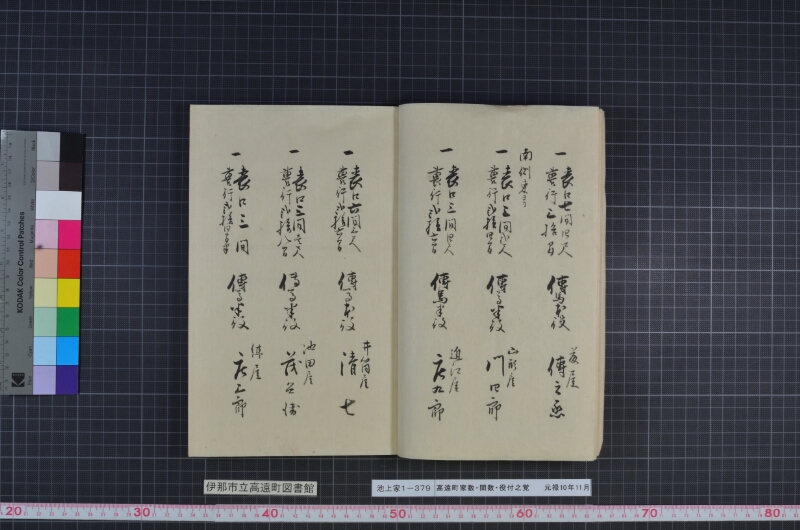 一 表口七間四尺
裏行三拾間
傳馬本役
傳之丞
南側東ヨリ
一 表口三間弐尺
裏行弐拾四間
傳馬半役
山形屋
門四郎
一 表口三間四尺
裏行弐拾六間
傳馬半役
近江屋
庄九郎
一 表口六間三尺
裏行弐拾六間
傳馬本役
井筒屋
清七
一 表口三間三尺
裏行弐拾九間
傳馬半役
池田屋
一 表口三間
裏行弐拾四間半
傳馬半役
俵屋
庄三郎
伊那市立高遠町図書館
池上家1-379 高遠町家数・間数・役付之覚 元禄10年11月
KODAK Color Control Patches
20 30 40 50 60 70 80